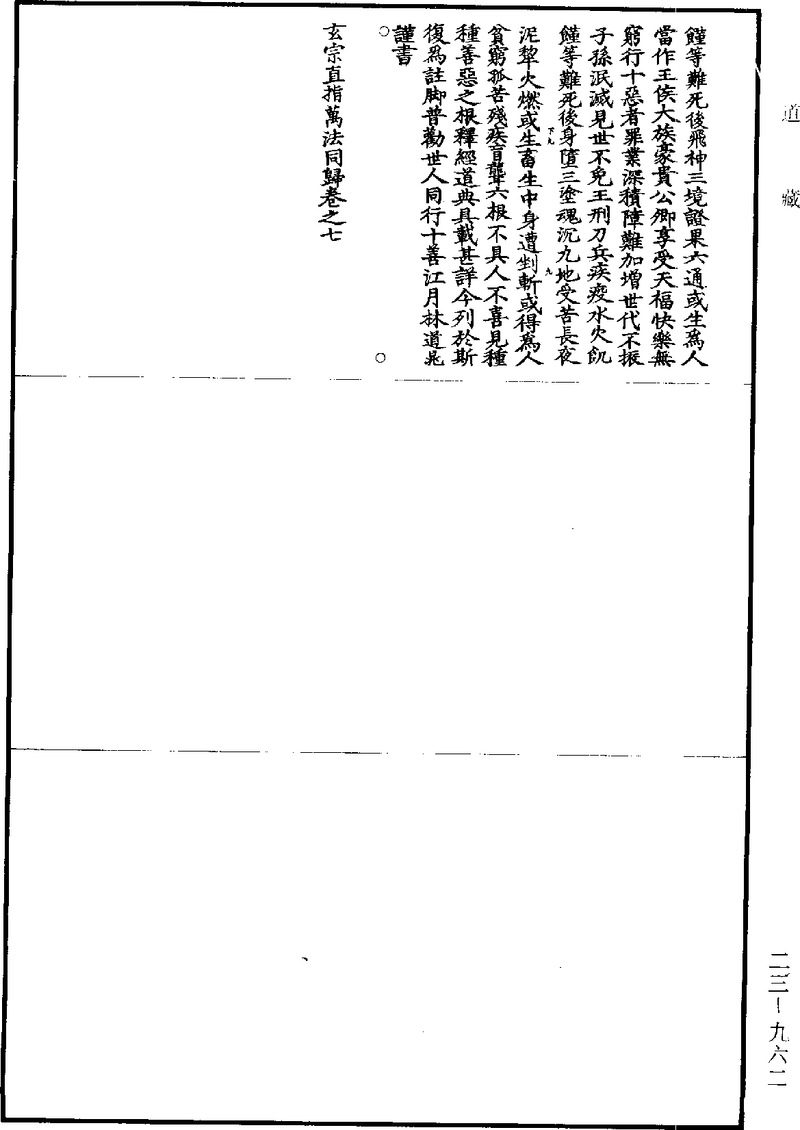 道藏
饉等難死後飛神三境證果六通或生爲人
當作王侯大族豪貴公卿享受天福快樂無
窮行十惡者罪業深積障難加增世代不振
子孫泯滅見世不免王刑刀兵疾疫水火飢
饉等難死後身墮三塗魂沉九地受苦長夜
下九
九
泥犂火燃或生畜生中身遭剉斬或得爲人
貧窮孤苦殘疾盲聾六根不具人不喜見種
種善惡之根釋經道典具載甚詳今列於斯
復爲註脚普勸世人同行十善江月林道兆
謹書
玄宗直指萬法同歸卷之七
二三-九六二